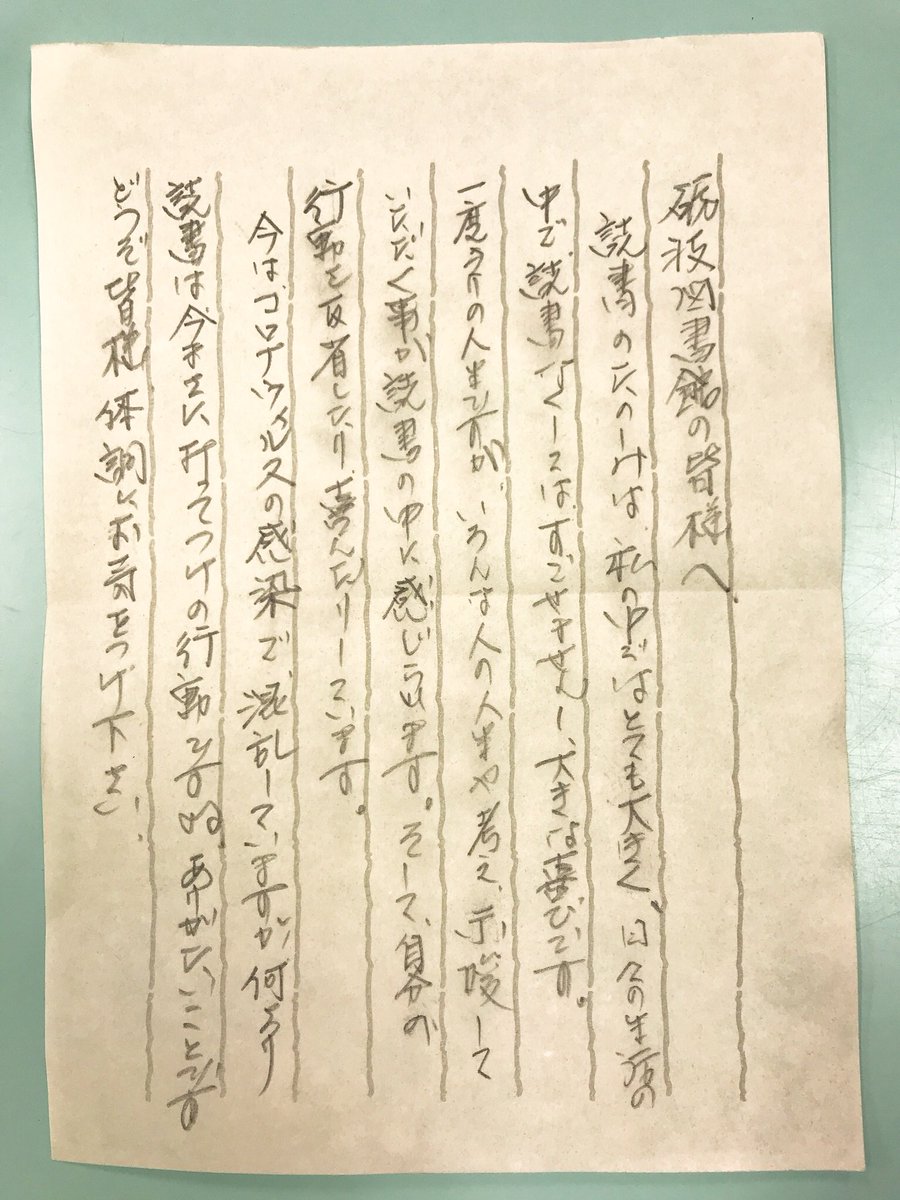 砺波図書館の皆様へ
読書のたのしみは、私の中ではとても大きく、日々の生活の
中で読書なくしてはすごせませんし、大きな喜びです。
一度きりの人生ですが、いろんな人の人生や考え、示唆して
いただく事が読書の中に感じられます。そして、自分の
行動を反省したり、喜んだりしています。
今はコロナウィルスの感染で混乱していますが、何より
読書は今まさに打ってつけの行動ですね。ありがたいことです
どうぞ皆様体調にお気をつけ下さい。